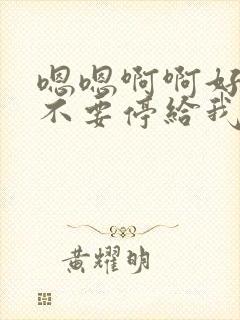 嗯嗯啊啊好
不要停给我
黄耀明